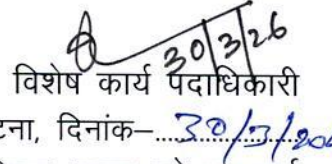 30/3/26
विशेष कार्य पदाधिकारी
टना, दिनांक–....30/3/20